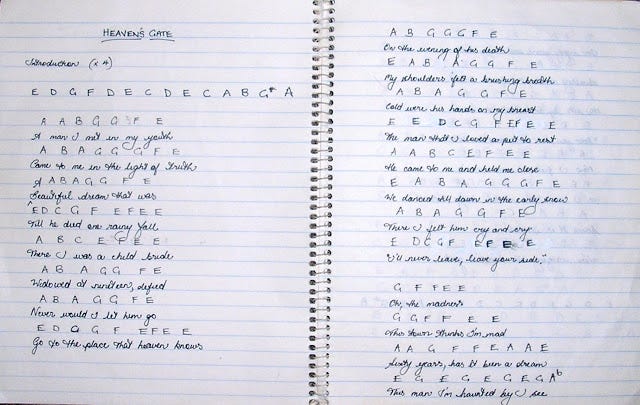 HEAVEN'S GATE
Introduction (x 4)
E D G F D E C D E C A B G# A
A A B G G F E
A man I met in my youth
A B A G G G F E
Came to me in the light of truth
A A B A G G F E
Beautiful dream that was
E D C G F E F E E
Till he died one rainy fall
A B C E F E E
There I was a child bride
A B A G G F E
Widowed at nineteen, defied
A B A G G F E
Never would I let him go
E D C G F E F E E
Go to the place that heaven knows
A B G G G F E
On the evening of his death
E A B A G G F E
My shoulders felt a brushing breath
A B A G G F E
Cold were his hands on my breast
E E D C G F E F E E
The man that I loved a put to rest
A A B C E F E E
He came to me and held me close
E A B A G G G F E
We danced till dawn in the early snow
A B A G G F E
There I felt him cry and cry
E D C G F E F E E
"I'll never leave, leave your side."
G F F E E
Oh, the madness
G G F F E E
This town thinks I'm mad
A A G F F E A A E
Sixty years, has it been a dream
E G E G E G E G Ab
This man I'm haunted by I see